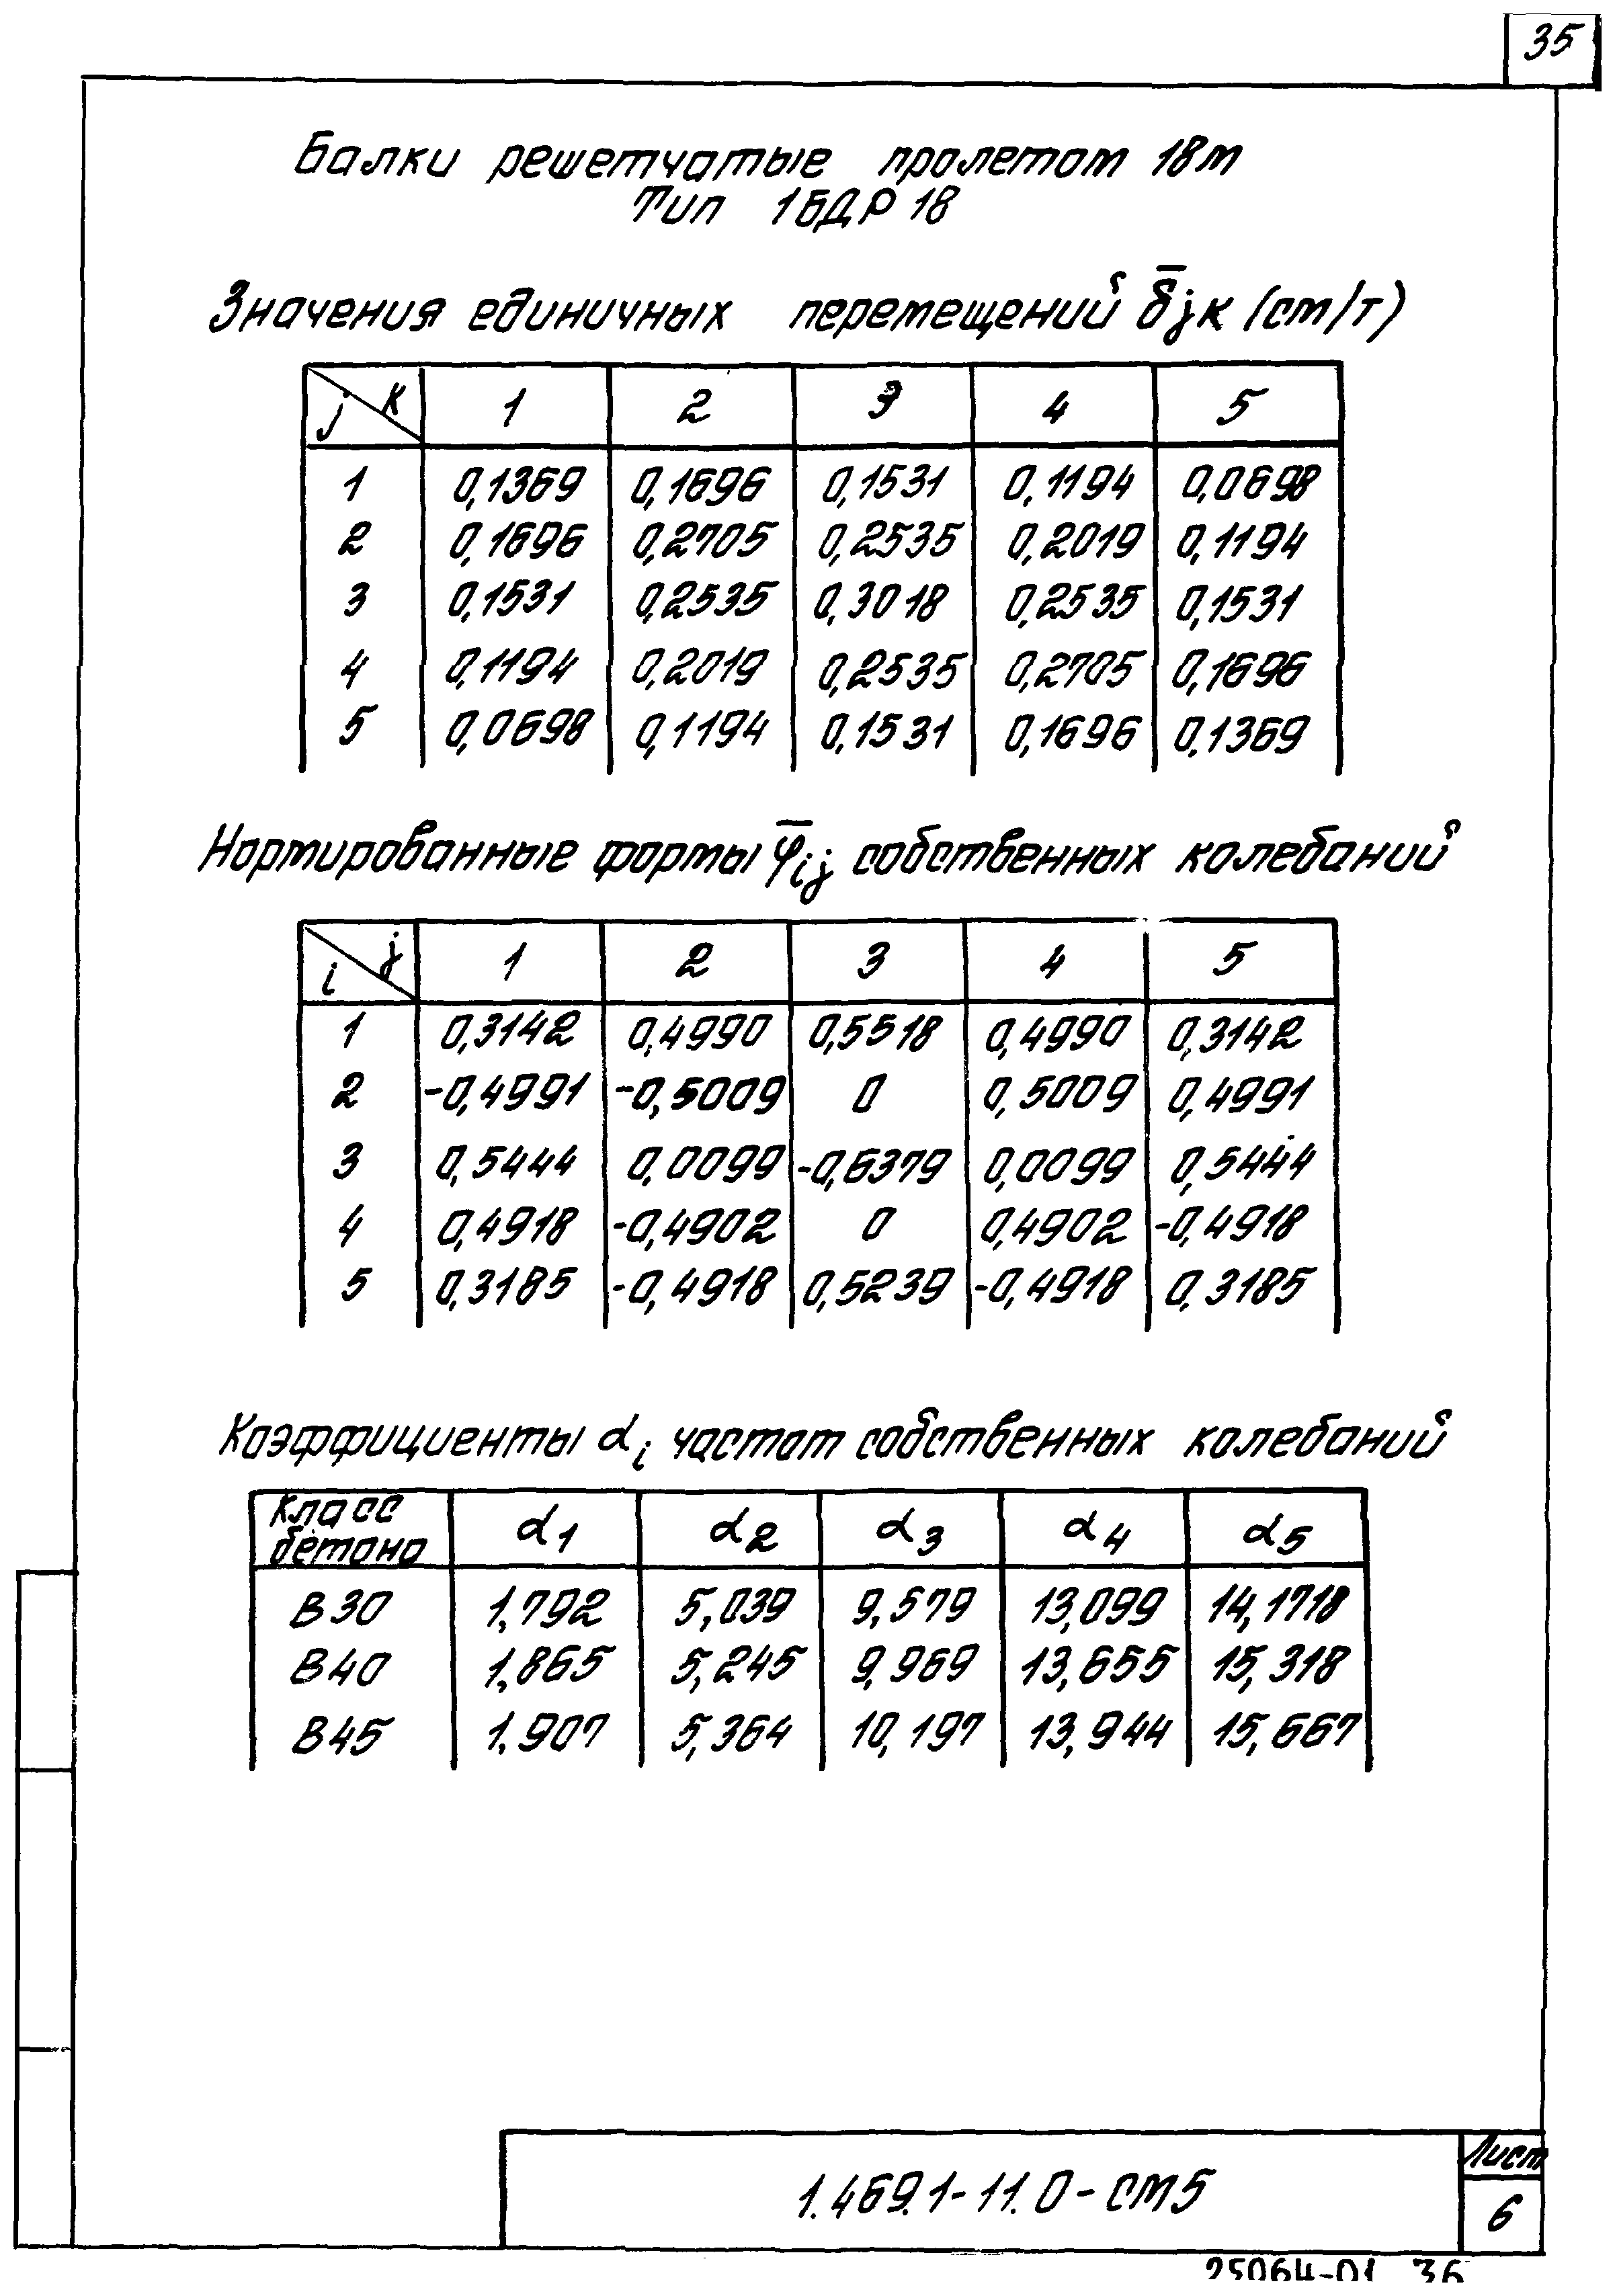 35
Балки решетчатые пролетом 18м
Тип 1БДР18
Значения единичных перемещений δ̄jк (см/т)
j к 1 2 3 4 5
1 0,1369 0,1696 0,1531 0,1194 0,0698
2 0,1696 0,2705 0,2535 0,2019 0,1194
3 0,1531 0,2535 0,3018 0,2535 0,1531
4 0,1194 0,2019 0,2535 0,2705 0,1696
5 0,0698 0,1194 0,1531 0,1696 0,1369
Нормированные формы φ̄ij собственных колебаний
i j 1 2 3 4 5
1 0,3142 0,4990 0,5518 0,4990 0,3142
2 -0,4991 -0,5009 0 0,5009 0,4991
3 0,5444 0,0099 -0,6379 0,0099 0,5444
4 0,4918 -0,4902 0 0,4902 -0,4918
5 0,3185 -0,4918 0,5239 -0,4918 0,3185
Коэффициенты αi частот собственных колебаний
Класс бетона α1 α2 α3 α4 α5
В30 1,792 5,039 9,579 13,099 14,1718
В40 1,865 5,245 9,969 13,655 15,318
В45 1,907 5,364 10,197 13,944 15,667
1.469.1-11.0-СМ5
Лист
6
25064-01 36